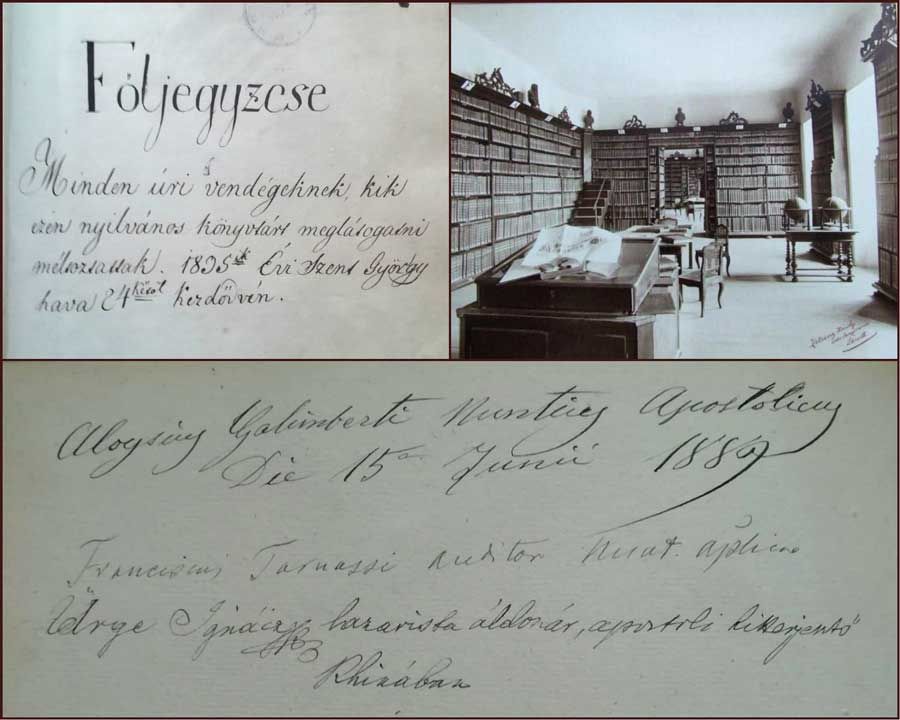 Följegyzese
Minden úri vendégeknek, kik
ezen nyilvános könyvtárt meglátogatni
méltoztattak. 1895ik Évi Szent György
hava 24kétöl kezdődvén.
Aloysius Galimberti Nuntius Apostolicus
Die 15a Junii 1889
Franciscus Tarnassi Auditor Nunt. Aplicae
Ürge Ignácz lazarista áldozár, apostoli hitterjesztő
Khinában